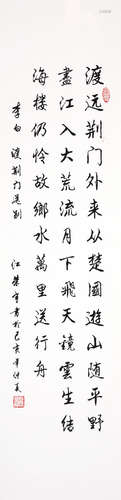 渡远荆门外来从楚國遊山随平野
盡江入大荒流月下飛天鏡雲生结
海楼仍怜故鄉水萬里送行舟
李白 渡荆门送别
江 書於己亥年仲夏